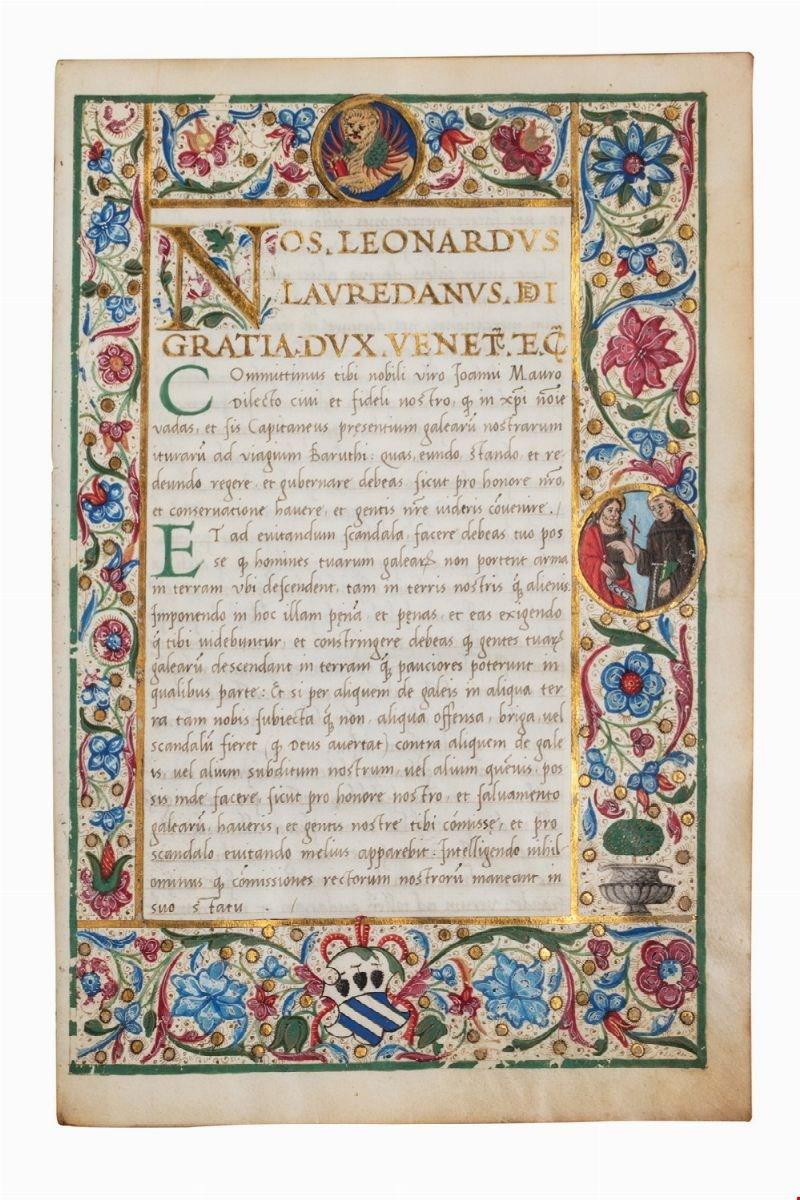 NOS. LEONARDVS
LAVREDANVS. DEI
GRATIA. DVX. VENET. E. Q
COmmittimus tibi nobili viro Joanni Mauro
Dilecto ciui et fideli nostro, q̃ in xp̃i nõie
vadas, et sis Capitaneus presentium galearũ nostrarum
iturarũ ad viagium Baruthi: quas, eundo, stando, et re-
deundo regere, et gubernare debeas sicut pro honore nr̃o,
et conservatione hauere, et gentis nr̃e videris cõuenire. /
ET ad euitandum scandala, facere debeas tuo pos
se q̃ homines tuarum galearꝝ non portent arma
in terram vbi descendent, tam in terris nostris q̃ alienis
Imponendo in hoc illam penã, et penas, et eas exigendo
q̃ tibi uidebuntur, et constringere debeas q̃ gentes tuarꝝ
galearũ descendant in terram q̃ pauciores poterunt in
qualibus parte: Et si per aliquem de galeis in aliqua ter
ra tam nobis subiecta q̃ non, aliqua offensa, briga, vel
scandalũ fieret (q̃ Deus auertat) contra aliquem de gale
is, vel alium subditum nostrum, vel alium quẽuis, pos
sis inde facere, sicut pro honore nostro, et saluamento
galearũ, haueris, et gentis nostre tibi cõmisse, et pro
scandalo euitando melius apparebit: Intelligendo nihil-
ominus q̃ cõmissiones rectorum nostrorũ maneant in
suo statu . /